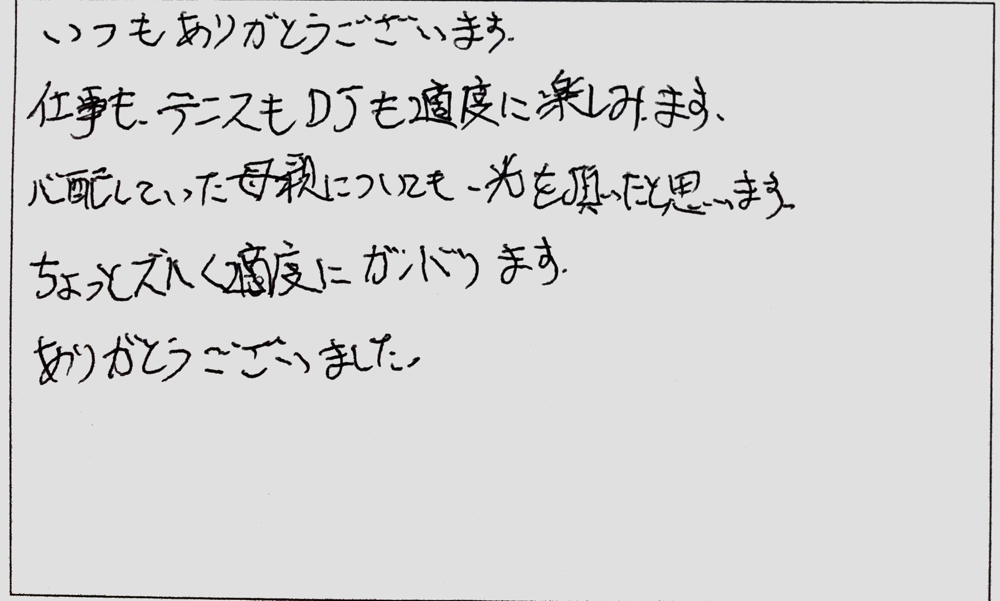 いつもありがとうございます.
仕事も、テニスもDJも適度に楽しみます、
心配していった母親についても一光を頂いたと思います
ちょっとズルく適度にガンバリます.
ありがとうございました.